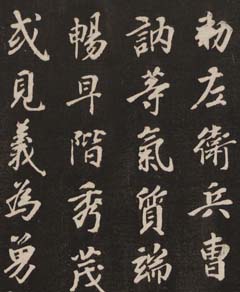 勅左衛兵曹
訥等氣質端
暢早階秀茂
或見義為勇